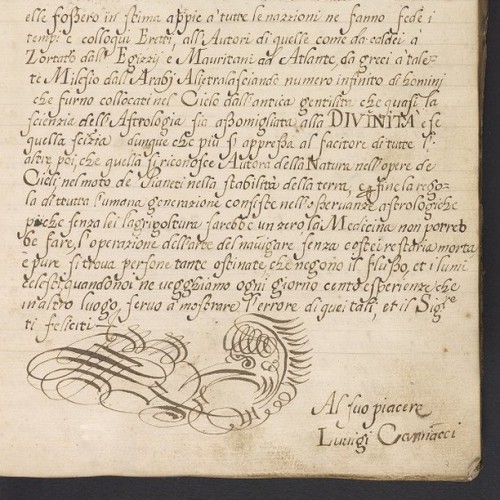 elle foßero in stima appie à tutte le nazzioni ne fanno fede i
tempi e colloqui Eretti, all' Autori di quelle come da caldei à
Zortasto dall' Egizzij e Mauritani ad Atlante, da greci a tale-
te Milesio dall' Arabj Alietralasciando numero infinito di homini
che furno collocati nel Cielo dall' antica gentilità che quasi la
scienzia dell' Astrologia sia aßomigliata alla DIVINITÀ e se
quella scizia dunque che più si appreßa al facitore di tutte l'
altre poi, che quella si riconosce Autora della Natura nell' opere de
Cieli nel moto de' Pianeti nella stabilità della terra, et in fine la rego-
la di tutta l'umana generazione consiste nell' isperuanze astrologiche
poiche senza lei lagricoltura sarebbe un zero la Medicina non potreb
be fare l'operazione dell' arte del nauigare senza costei restaria morta
e pure si troua persone tante ostinate che negono il flußo, et i lumi
celesti quando noi ne uegghiamo ogni giorno cento esperienze che
in altro luogo seruo a mostrare l'errore di quei tali, et il Sig:re
ti feliciti
Al suo piacere
Luuigi Carriacci